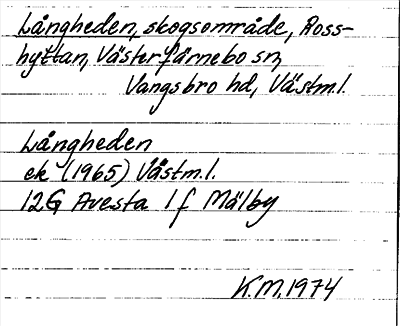 Långheden, skogsområde, Ross-
hyttan, Västerfärnebo sn,
Vangsbro hd, Västm.l.
Långheden
ek (1965) Västm.l.
12G Avesta 1 f Mälby
K.M.1974